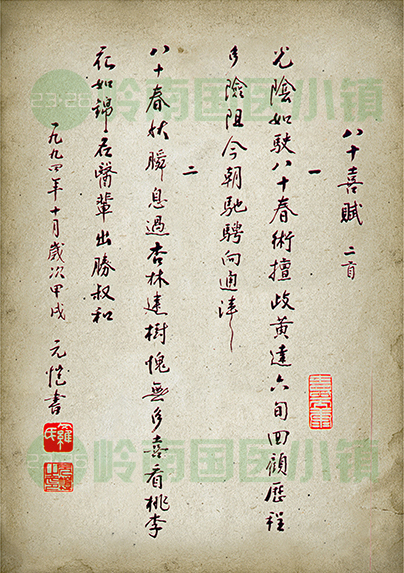 八十喜賦 二首
一
光陰如駛八十春術擅歧黃達六旬回顧歷程
多險阻今朝馳騁向通津
二
八十春秋瞬息過杏林建樹愧無多喜看桃李
花如錦醫輩出勝叔和
一九九四年十月歲次甲戌 元愷書
岭南国医小镇
岭南国医小镇